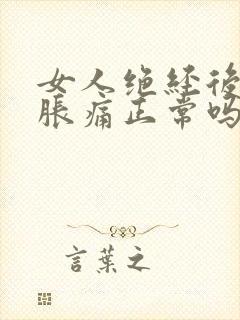 女人绝经後
脹痛正常吗
言葉之